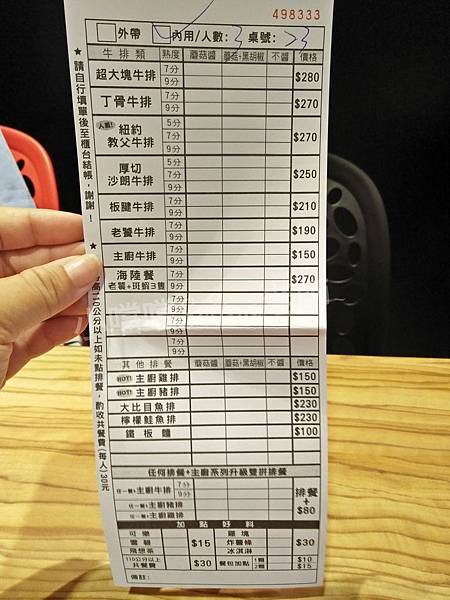 498333
外帶 內用/人數:3 桌號:33
牛排類 熟度 蘑菇醬 蘑菇+黑胡椒 不醬 價格
超大塊牛排 7分 9分 $280
丁骨牛排 7分 9分 $270
人氣! 紐約教父牛排 5分 7分 9分 $270
厚切沙朗牛排 5分 7分 9分 $250
板腱牛排 7分 9分 $210
老饕牛排 7分 9分 $190
主廚牛排 7分 9分 $150
海陸餐 7分 $270
老饕+斑蝦3隻 9分
7分
9分
7分
9分
其他排餐 蘑菇醬 蘑菇+黑胡椒 不醬 價格
HOT! 主廚雞排 $150
HOT! 主廚豬排 $150
大比目魚排 $230
檸檬鮭魚排 $230
鐵板麵 $100
任何排餐+主廚系列升級雙拼排餐
任一餐+主廚牛排 7分 9分 排餐+$80
任一餐+主廚豬排
任一餐+主廚雞排
加點好料
可樂 雞塊
雪碧 $15 炸薯條 $30
飛想茶 冰淇淋
110公分以上共餐費 $30 餐包加點 1顆 $10 2顆 $15
備註:
★請自行填單後至櫃台結帳,謝謝!
★ 高110公分以上如未點排餐,酌收共餐費(每人)30元